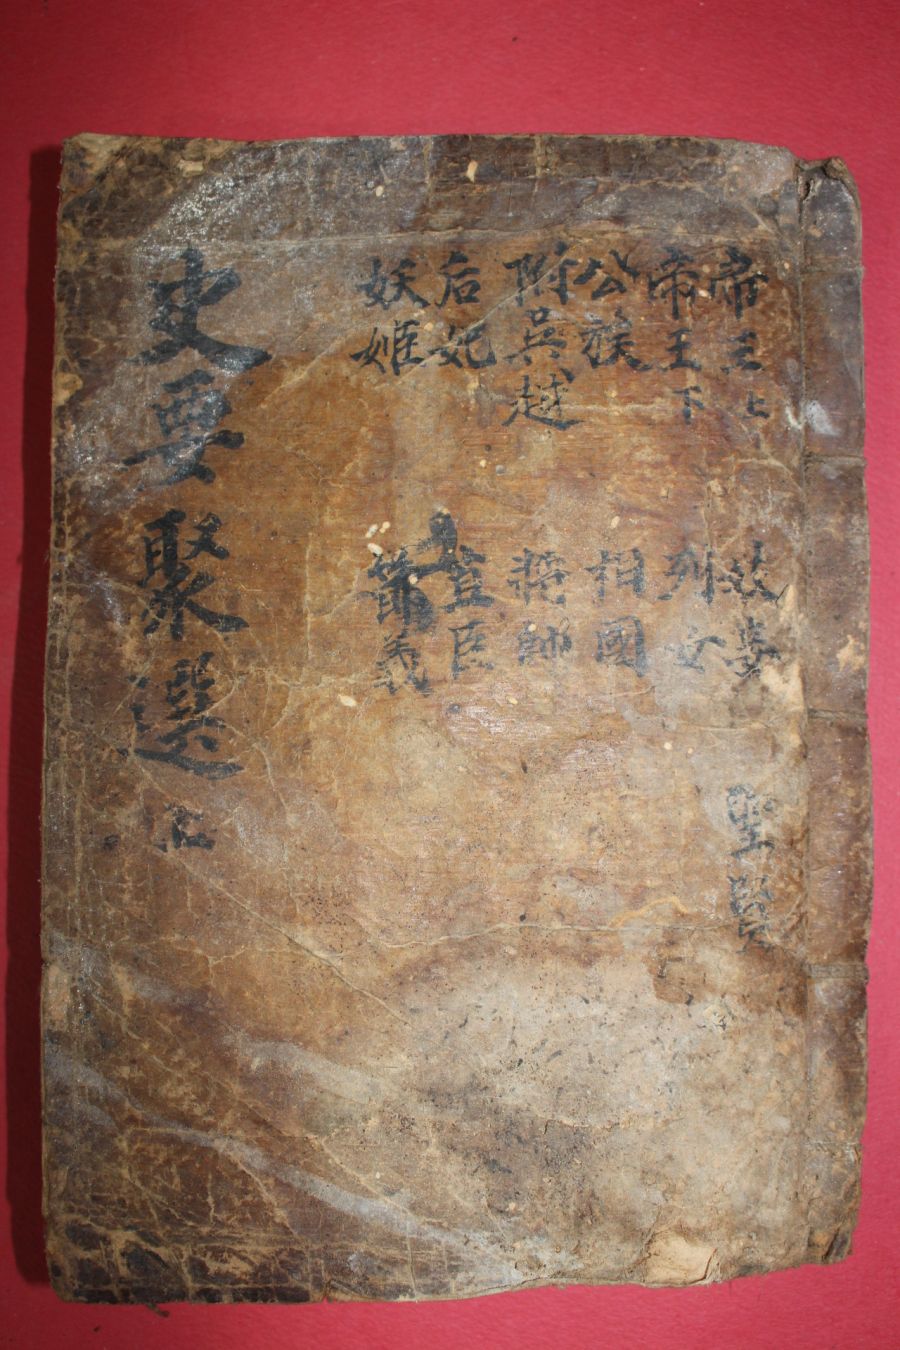 帝王上
帝王下
公族
附吳越
后妃
妖姬
妾
列女
相國
將帥
直臣
節義
聖賢
史要聚選 上